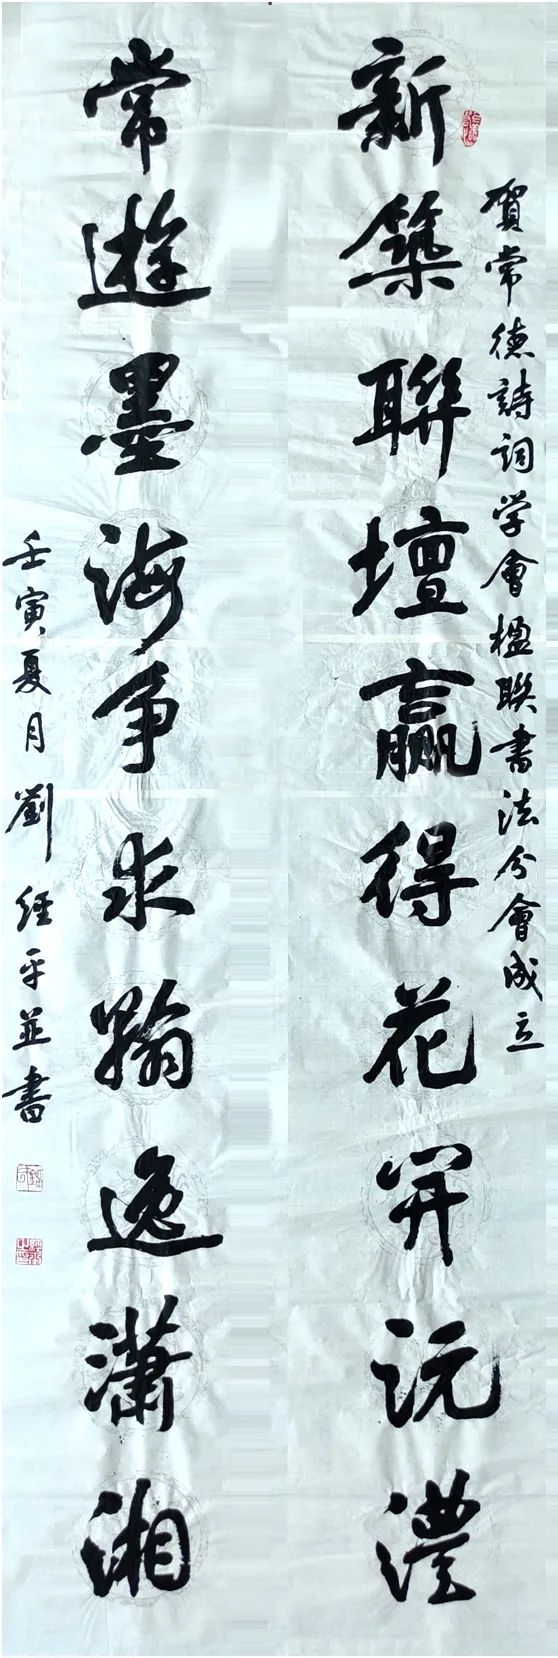 賀常德詩詞学會楹聯書法分會成立
新築聯壇贏得花開沅澧
常遊墨海爭求翰逸瀟湘
壬寅夏月劉經平並書